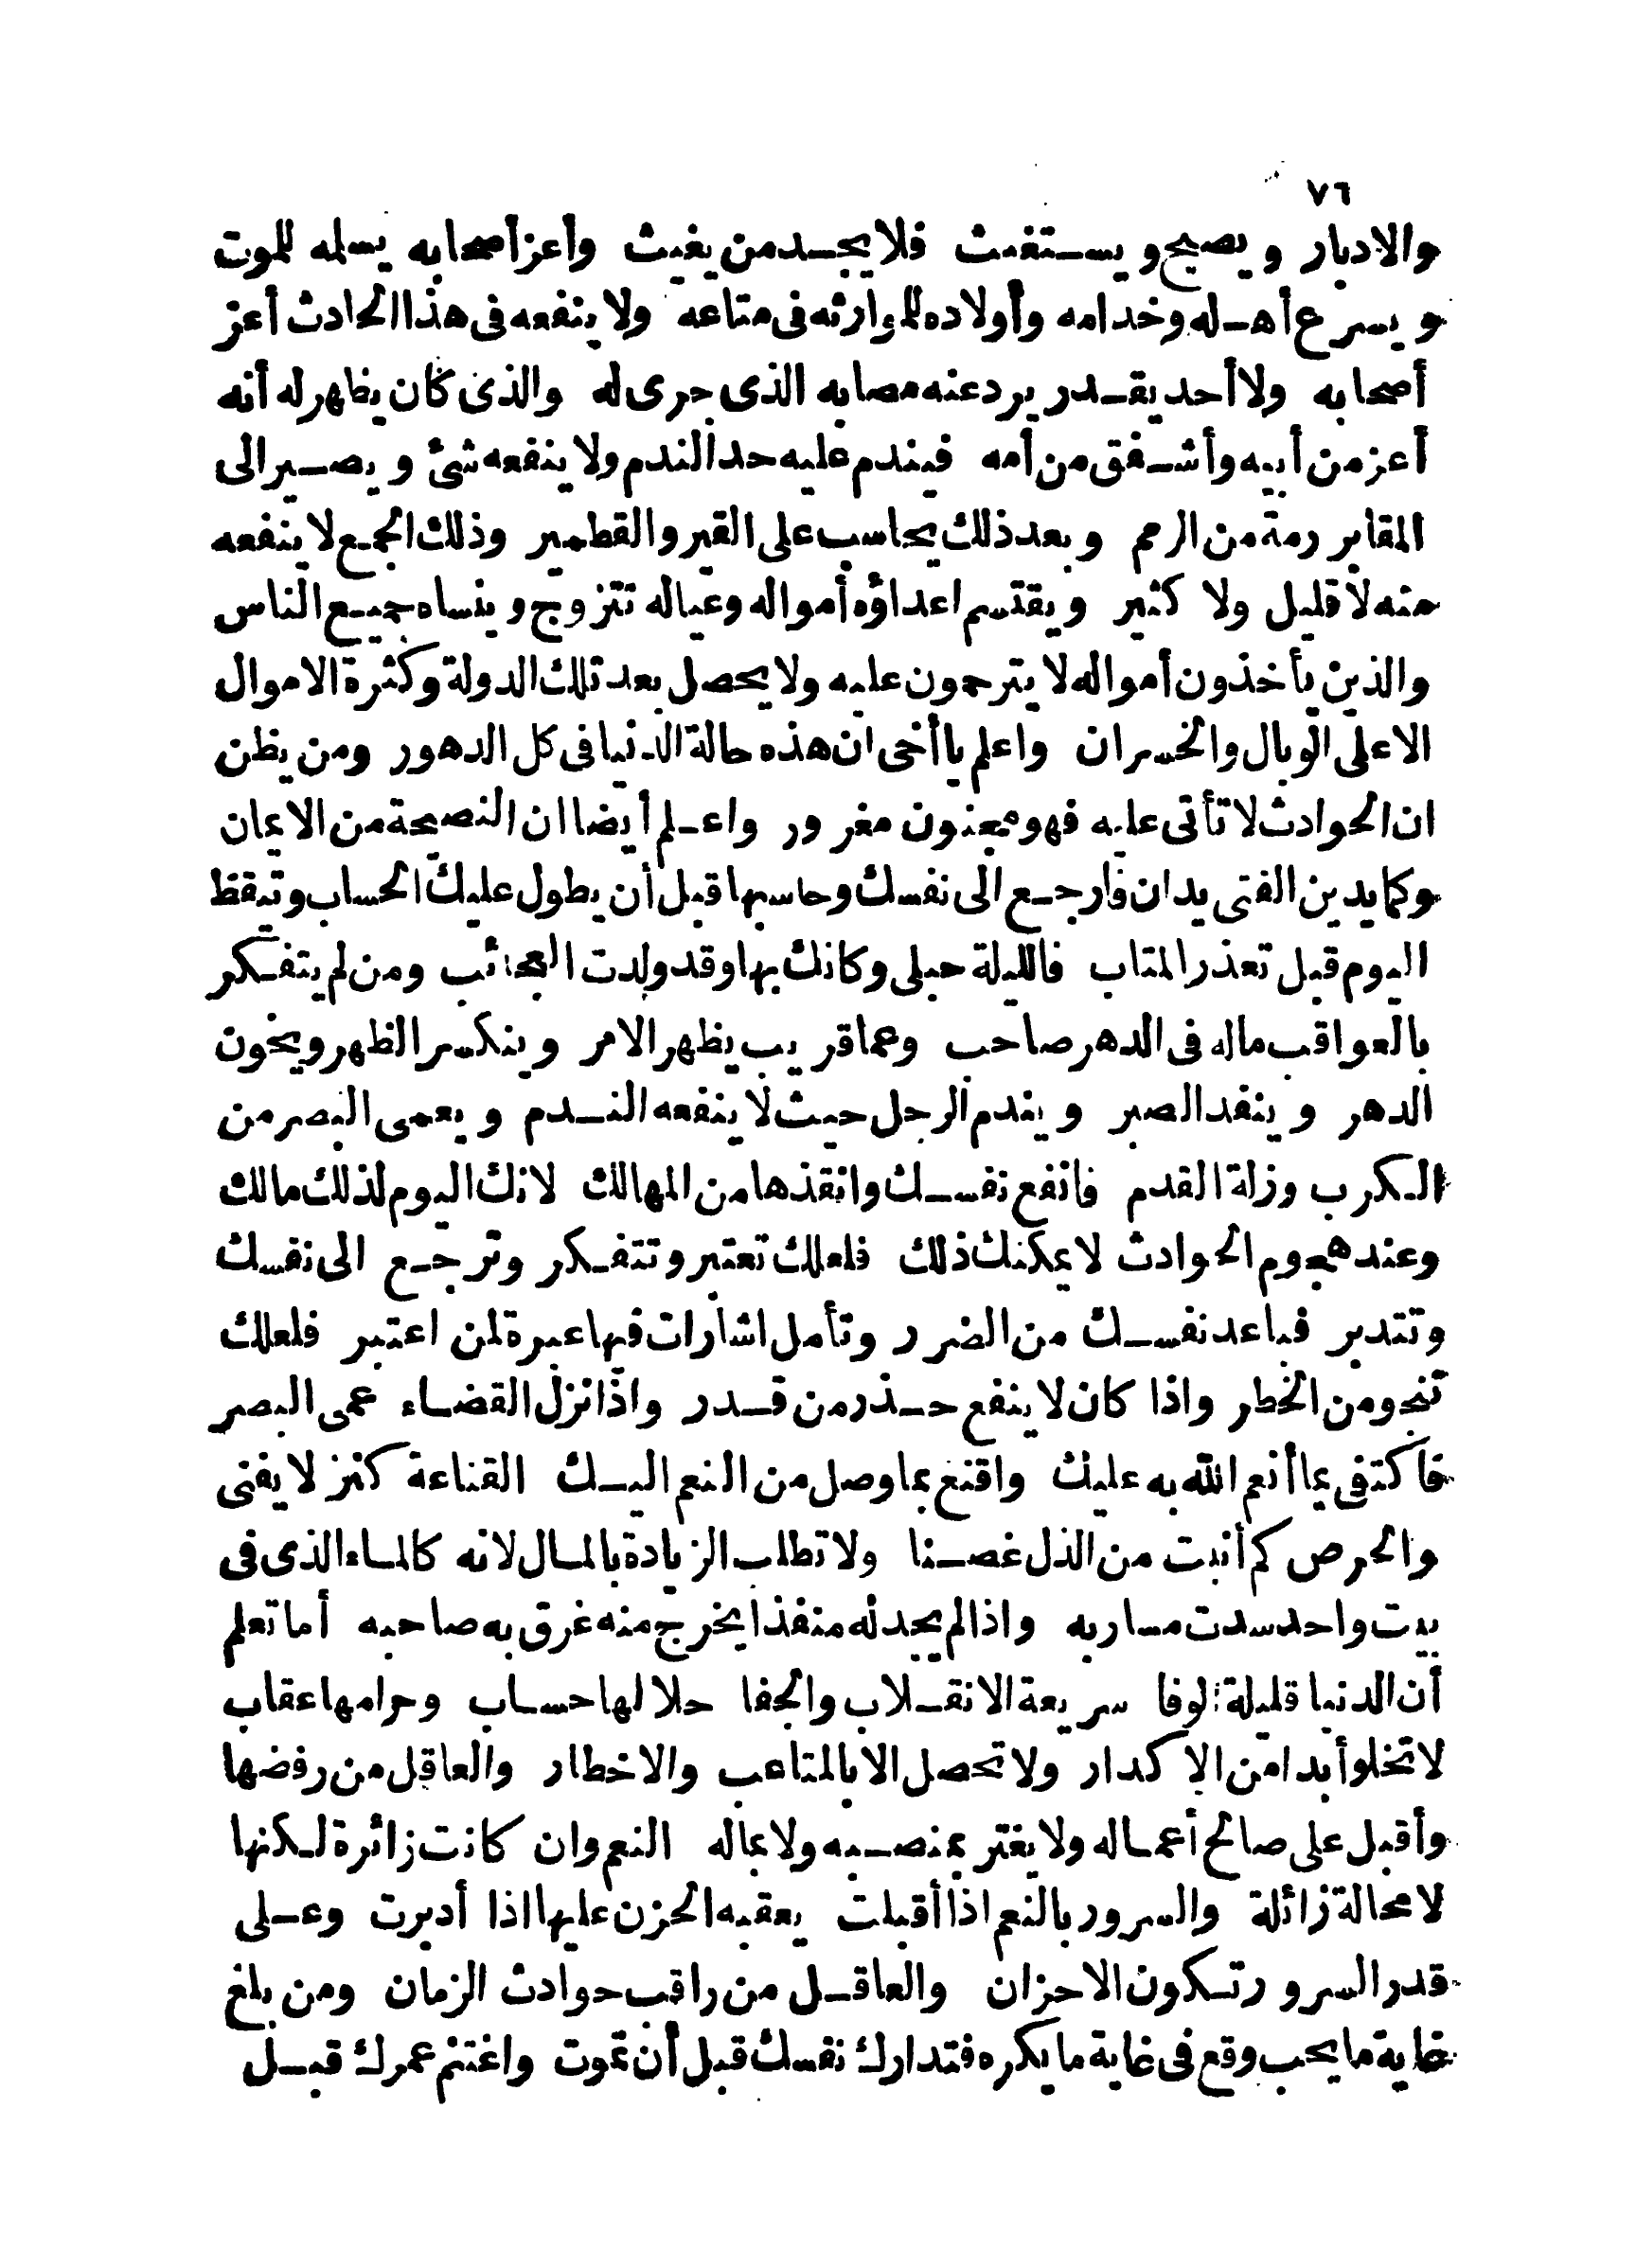 ٧٦
والادبار ويصيح ويستغيث فلا يجد من يغيث وأعز أصحابه يسلمه للموت
ويسرع أهله وخدامه وأولاده للموارثه فى متاعه ولا ينفعه فى هذا الحادث أعز
أصحابه ولا أحد يقدر يرد عنه مصابه الذى جرى له والذى كان يظهر له أنه
أعز من أبيه وأشفق من أمه فيندم عليه حد الندم ولا ينفعه شئ ويصير الى
المقابر رمة من الرمم وبعد ذلك يحاسب على القير والقطمير وذلك الجمع لا ينفعه
منه لا قليل ولا كثير ويقتسم اعداؤه أمواله وعياله تتزوج وينساه جميع الناس
والذين يأخذون أمواله لا يترحمون عليه ولا يحصل بعد تلك الدولة وكثرة الاموال
الا على الوبال والخسران واعلم يا أخى ان هذه حالة الدنيا فى كل الدهور ومن يظن
ان الحوادث لا تأتى عليه فهو مجنون مغرور واعلم أيضا ان النصيحة من الايمان
وكما يدين الفتى يدان فارجع الى نفسك وحاسبها قبل أن يطول عليك الحساب وتيقظ
اليوم قبل تعذر المتاب فالليلة حبلى وكانك بها وقد ولدت العجائب ومن لم يتفكر
بالعواقب ماله فى الدهر صاحب وعما قريب يظهر الامر وينكسر الظهر ويخون
الدهر وينفد الصبر ويندم الرجل حيث لا ينفعه الندم ويعمى البصر من
الكرب وزلة القدم فانفع نفسك وانقذها من المهالك لانك اليوم لذلك مالك
وعند هجوم الحوادث لا يمكنك ذلك فلعلك تعتبر وتتفكر وترجع الى نفسك
وتتدبر فباعد نفسك من الضرر وتأمل اشارات فيها عبرة لمن اعتبر فلعلك
تنجو من الخطر واذا كان لا ينفع حذر من قدر واذا نزل القضاء عمى البصر
فاكتفى بما أنعم الله به عليك واقنع بما وصل من النعم اليك القناعة كنز لا يفنى
والحرص كم أنبت من الذل غصنا ولا تطلب الزيادة بالمال لانه كالماء الذى فى
بيت واحد سدت مساربه واذا لم يجد له منفذا يخرج منه غرق به صاحبه أما تعلم
أن الدنيا قليلة الوفا سريعة الانقلاب والجفا حلالها حساب وحرامها عقاب
لا تخلو أبدا من الاكدار ولا تحصل الا بالمتاعب والاخطار والعاقل من رفضها
وأقبل على صالح أعماله ولا يغتر بمنصبه ولا بماله النعم وان كانت زائرة لكنها
لا محالة زائلة والسرور بالنعم اذا أقبلت يعقبه الحزن عليها اذا أدبرت وعلى
قدر السرور تكون الاحزان والعاقل من راقب حوادث الزمان ومن بلغ
غاية ما يحب وقع فى غاية ما يكره فتدارك نفسك قبل أن تموت واغتنم عمرك قبل